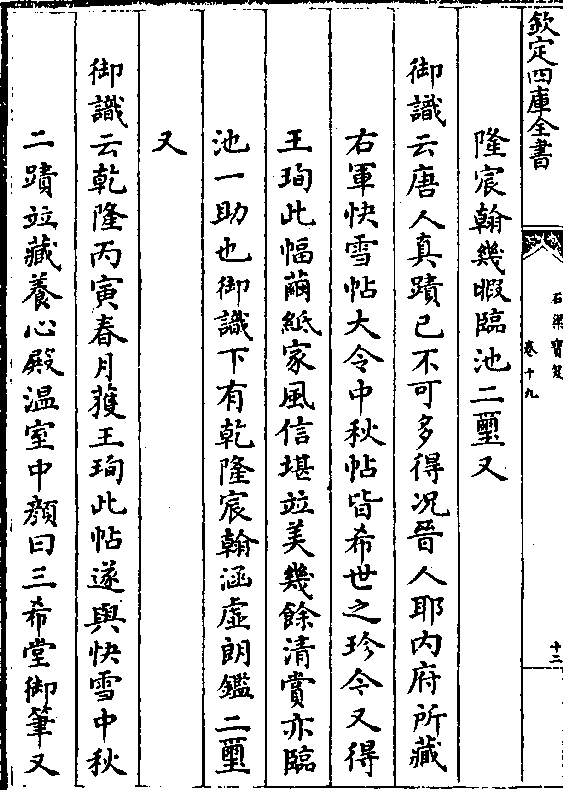 欽定四庫全書
石渠寶笈
卷十九
十三
隆宸翰幾暇臨池二璽又
御識云唐人真蹟已不可多得况晉人耶内府所藏
右軍快雪帖大令中秋帖皆希世之珍今又得
王珣此幅繭紙家風信堪竝美幾餘清賞亦臨
池一助也御識下有乾隆宸翰涵虛朗鑑二璽
又
御識云乾隆丙寅春月獲王珣此帖遂與快雪中秋
二蹟竝藏養心殿温室中顏曰三希堂御筆又